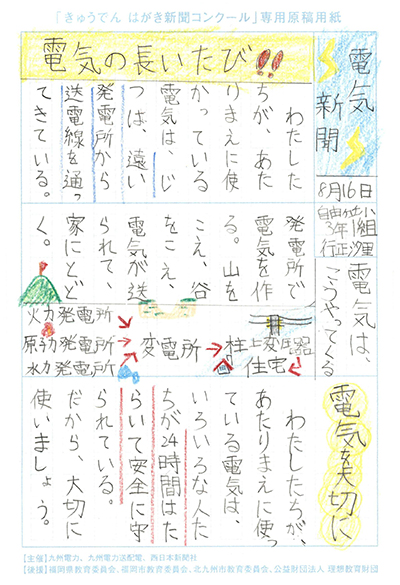 「きゅうでん はがき新聞コンクール」専用原稿用紙
電気新聞
8月16日
3年1組
電気の長いたび!!
わたした
ちが、あた
りまえに使
かっている
電気は、じ
つは、遠い
発電所から
送電線を通っ
てきている。
電気は、
こうやってくる
発電所で
電気を作
る。山を
こえ、谷
をこえ、
電気が送
られて、
家にとど
く。
火力発電所
原子力発電所
水力発電所
変電所
柱上変圧器
住宅
電気を大切に
わたしたちが、
あたりまえに使っ
ている電気は、
いろいろな人た
ちが24時間はた
らいて安全に守
られている。
だから、大切に
使いましょう。
【主催】九州電力、九州電力送配電、西日本新聞社
【後援】福岡県教育委員会、福岡市教育委員会、北九州市教育委員会、公益財団法人 理想教育財団